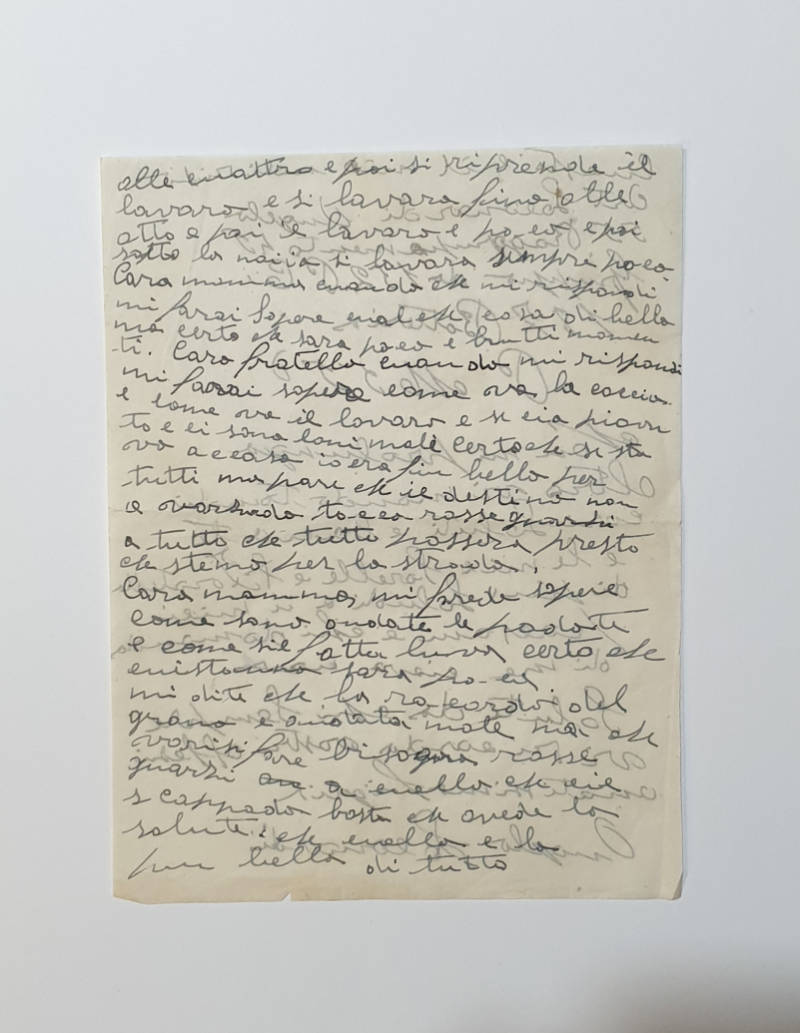 alle cuattro e poi si riprende il
lavaro e si lavara fino alle
otto e poi il lavaro e poco e poi
sotto la naiia si lavara sempre poco
Cara mamma cuando che mi rispondi
mi farai sapere cualche cosa di bello
ma certo che sara poco e brutti momen
ti. Caro fratello cuando mi rispondi
mi farai sapere come va la caccia
e come va il lavaro e se cia piovu
to e ci sono animali certo che se sta
va a casa io era piu bello per
tutti ma pare che il destino non
a tocca rasse guarsi
a tutto che tutto passera presto
che stemo per la strada.
Cara mamma mi farede sapere
come sono andate le padate
e come si e fatta luva certo che
cuistanno sara poca
mi dite che la racordo del
grano e andata male ma che
fare bisogna rasse
guarsi a cuello che cie
scappado basta che avede la
salute che cuella e la
piu bella di tutto